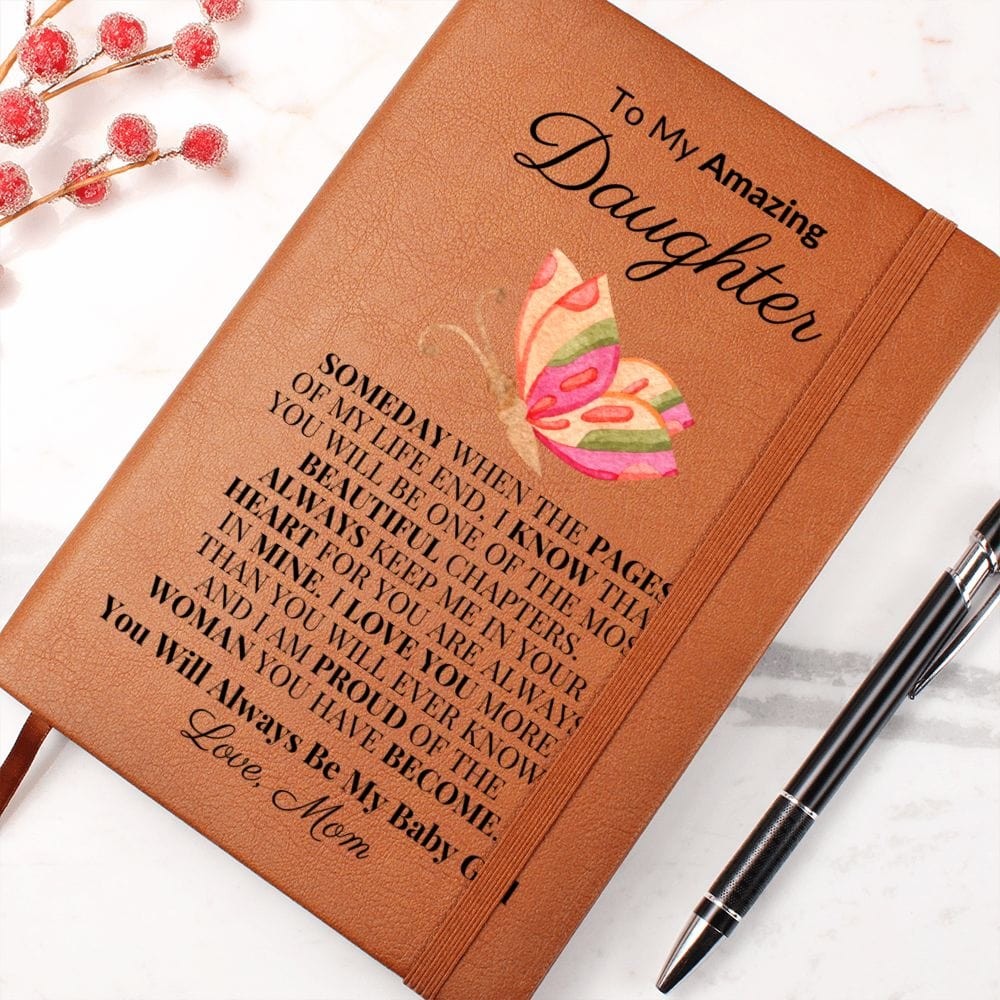 To My Amazing
Daughter
SOMEDAY WHEN THE PAGES
OF MY LIFE END, I KNOW THA
YOU WILL BE ONE OF THE MOS
BEAUTIFUL CHAPTERS.
ALWAYS KEEP ME IN YOUR
HEART FOR YOU ARE ALWAYS
IN MINE. I LOVE YOU MORE
THAN YOU WILL EVER KNOW
AND I AM PROUD OF THE
WOMAN YOU HAVE BECOME.
You Will Always Be My Baby G l
Love, Mom